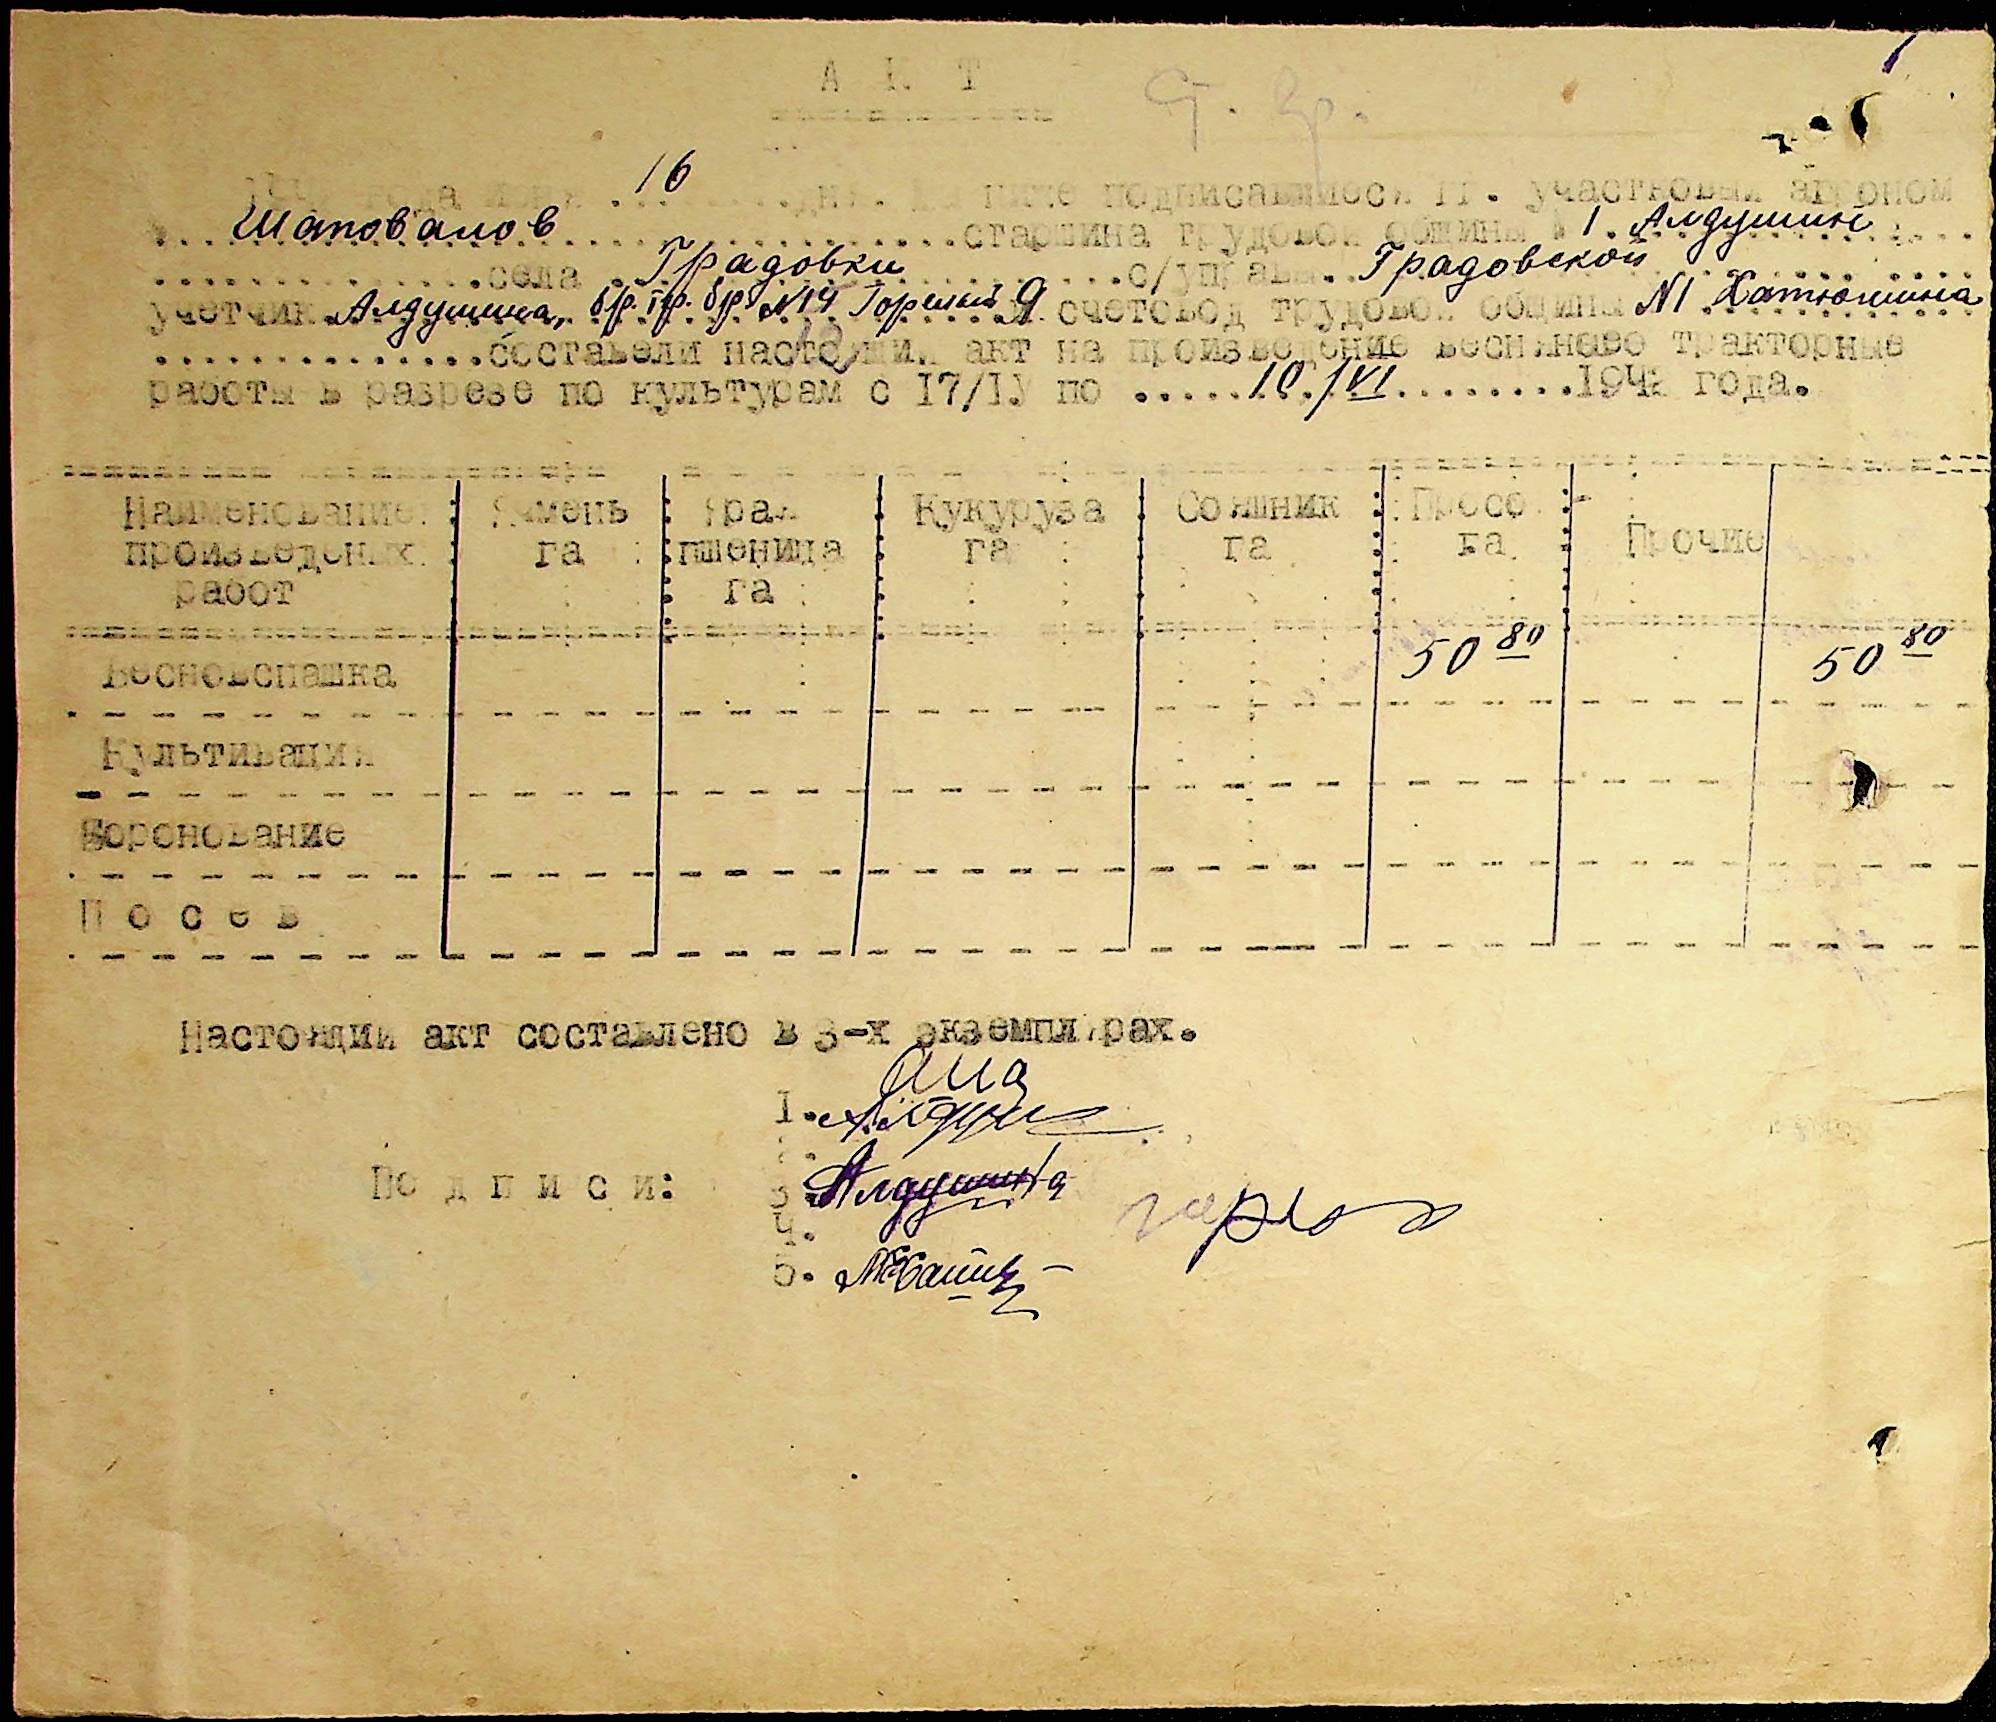 А К Т
года июня 16 дня. ниже подписавшиеся П. участковый агроном
Шаповалов старшина трудовой общины № 1. Алдушин
села Градовки с/управы Градовской
учетчик Алдушина, бр. тр. бр. №14 Горелый Я. счетовод трудовой общины №1 Хатюшина
составели настоящий акт на произведение весняново тракторные
работы в разрезе по культурам с 17/IУ по 10/VI 1942 года.
Наименование произведеных работ Ячмень га Яран пшеница га Кукуруза га Сояшник га Просо га Прочие
Весновспашка 50 80 50 80
Культивация
Боронование
П о с е в
Настоящий акт составлено в 3-х экземплярах.
1.
П о д п и с и: 3. Алдушина
4.
5.